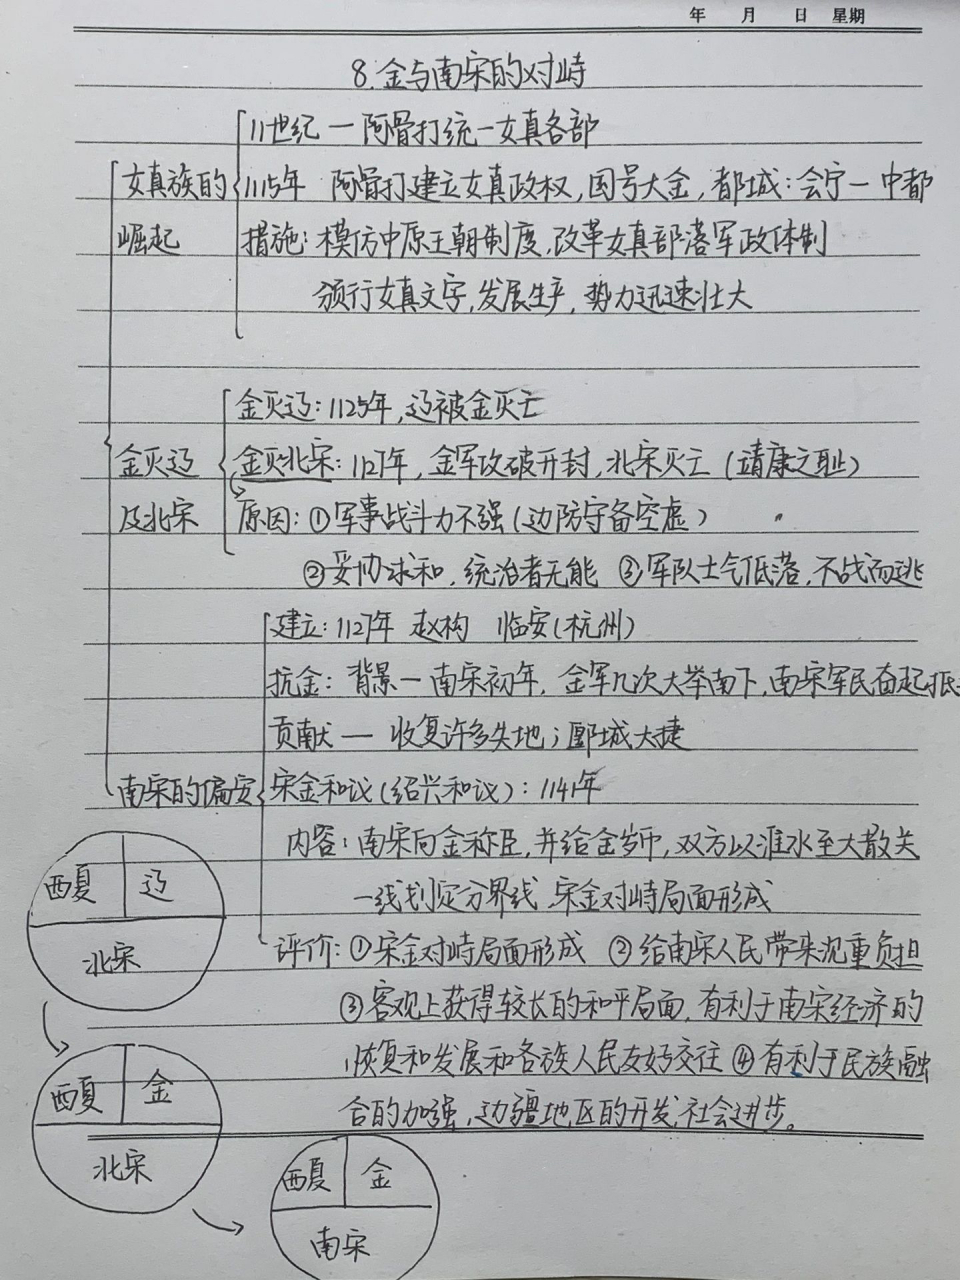 年 月 日 星期
8.金与南宋的对峙
11世纪一阿骨打统一女真各部
女真族的崛起
1115年 阿骨打建立女真政权,国号大金,都城:会宁一中都
措施:模仿中原王朝制度,改革女真部落军政体制
颁行女真文字,发展生产,势力迅速壮大
金灭辽:1125年,辽被金灭亡
金灭辽及北宋
金灭北宋:1127年,金军攻破开封,北宋灭亡(靖康之耻)
原因:①军事战斗力不强(边防守备空虚)
②妥协求和,统治者无能 ③军队士气低落,不战而逃
建立:1127年 赵构 临安(杭州)
抗金:背景一南宋初年,金军几次大举南下,南宋军民奋起抵
贡献一 收复许多失地;郾城大捷
南宋的偏安
宋金和议(绍兴和议):1141年
内容:南宋向金称臣,并给金岁币,双方以淮水至大散关
一线划定分界线,宋金对峙局面形成
评价:①宋金对峙局面形成 ②给南宋人民带来沉重负担
③客观上获得较长的和平局面,有利于南宋经济的
恢复和发展和各族人民友好交往 ④有利于民族融
合的加强,边疆地区的开发,社会进步。
西夏 辽
北宋
西夏 金
北宋
西夏 金
南宋